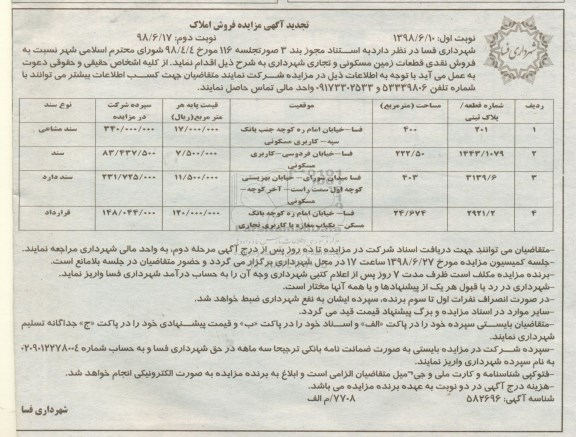 تجدید آگهی مزایده فروش املاک
نوبت اول: ۱۳۹۸/۶/۱۰ نوبت دوم: ۹۸/۶/۱۷
شهرداری فسا
شهرداری فسا در نظر دارد به استناد مجوز بند ۳ صورتجلسه ۱۱۶ مورخ ۹۸/۴/۴ شورای محترم اسلامی شهر نسبت به
فروش نقدی قطعات زمین مسکونی و تجاری شهرداری به شرح ذیل اقدام نماید. از کلیه اشخاص حقیقی و حقوقی دعوت
به عمل می آید با توجه به اطلاعات ذیل در مزایده شرکت نمایند متقاضیان جهت کسب اطلاعات بیشتر می توانند با
شماره تلفن ۵۳۳۳۹۸۰۶ و ۰۹۱۷۳۳۰۲۵۳۳ واحد مالی تماس حاصل نمایند.
ردیف شماره قطعه/ پلاک ثبتی مساحت (مترمربع) موقعیت قیمت پایه هر متر مربع(ریال) سپرده شرکت در مزایده نوع سند
۱ ۲۰۱ ۴۰۰ فسا-خیابان امام ره کوچه جنب بانک سپه- کاربری مسکونی ۱۷/۰۰۰/۰۰۰ ۳۴۰/۰۰۰/۰۰۰ سند مشاعی
۲ ۱۴۴۳/۱۰۷۹ ۲۲۲/۵۰ فسا-خیابان فردوسی-کاربری مسکونی ۷/۵۰۰/۰۰۰ ۸۳/۴۳۷/۵۰۰ سند
۳ ۳۱۳۹/۶ ۴۰۳ فسا میدان شورای- خیابان بهزیستی کوچه اول سمت راست- آخر کوچه- مسکونی ۱۱/۵۰۰/۰۰۰ ۲۳۱/۷۲۵/۰۰۰ سند دارد
۴ ۲۹۲۱/۲ ۲۴/۶۷۴ فسا- خیابان امام ره کوچه بانک مسکن- یکباب مغازه با کاربری تجاری ۱۲۰/۰۰۰/۰۰۰ ۱۴۸/۰۴۴/۰۰۰ قرارداد
-متقاضیان می توانند جهت دریافت اسناد شرکت در مزایده تا ده روز پس از درج آگهی مرحله دوم، به واحد مالی شهرداری مراجعه نمایند.
-جلسه کمیسیون مزایده مورخ ۱۳۹۸/۶/۲۷ ساعت ۱۷ در محل شهرداری برگزار می گردد و حضور متقاضیان در جلسه بلامانع است.
-برنده مزایده مکلف است ظرف مدت ۷ روز پس از اعلام کتبی شهرداری وجه آن را به حساب درآمد شهرداری فسا واریز نماید.
-شهرداری در رد یا قبول هر یک از پیشنهادها و یا همه آنها مختار است.
-در صورت انصراف نفرات اول تا سوم برنده، سپرده ایشان به نفع شهرداری ضبط خواهد شد.
-سایر موارد در اسناد مزایده و برگ پیشنهاد قیمت قید می گردد.
-متقاضیان بایستی سپرده خود را در پاکت «الف» و اسناد خود را در پاکت «ب» و قیمت پیشنهادی خود را در پاکت «ج» جداگانه تسلیم
شهرداری نمایند.
-سپرده شرکت در مزایده بایستی به صورت ضمانت نامه بانکی ترجیحا سه ماهه در حق شهرداری فسا و به حساب شماره ۰۲۰۹۰۱۲۲۷۸۰۰۴
به نام سپرده شهرداری واریز نمایند.
-فتوکپی شناسنامه و کارت ملی و جی-میل متقاضیان الزامی است و ابلاغ به برنده مزایده به صورت الکترونیکی انجام خواهد شد.
-هزینه درج آگهی در دو نوبت به عهده برنده مزایده می باشد.
شناسه آگهی: ۵۸۲۶۹۶ ۷۷۰۸/م الف
شهرداری فسا